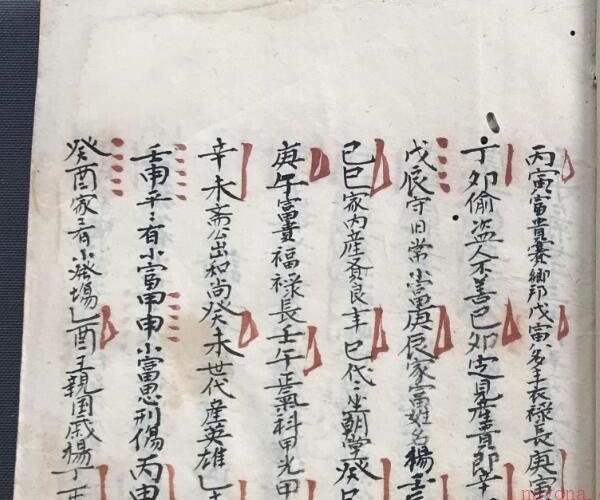 丙寅富貴賽鄉邦戊寅多手衣祿長庚寅
丁卯偷盗人不善己卯定見產貴郎辛
戊辰守旧常小富庚辰家富姓名楊壬
己巳家内産賢良辛巳代々坐朝学癸巳
庚午富貴福祿長壬午正氣科甲光甲
辛未斋公出和尚癸未世代產英雄乙
壬申平々有小富甲申小富忌刑傷丙申
癸酉家々有小發塲乙酉王親国戚楊丁